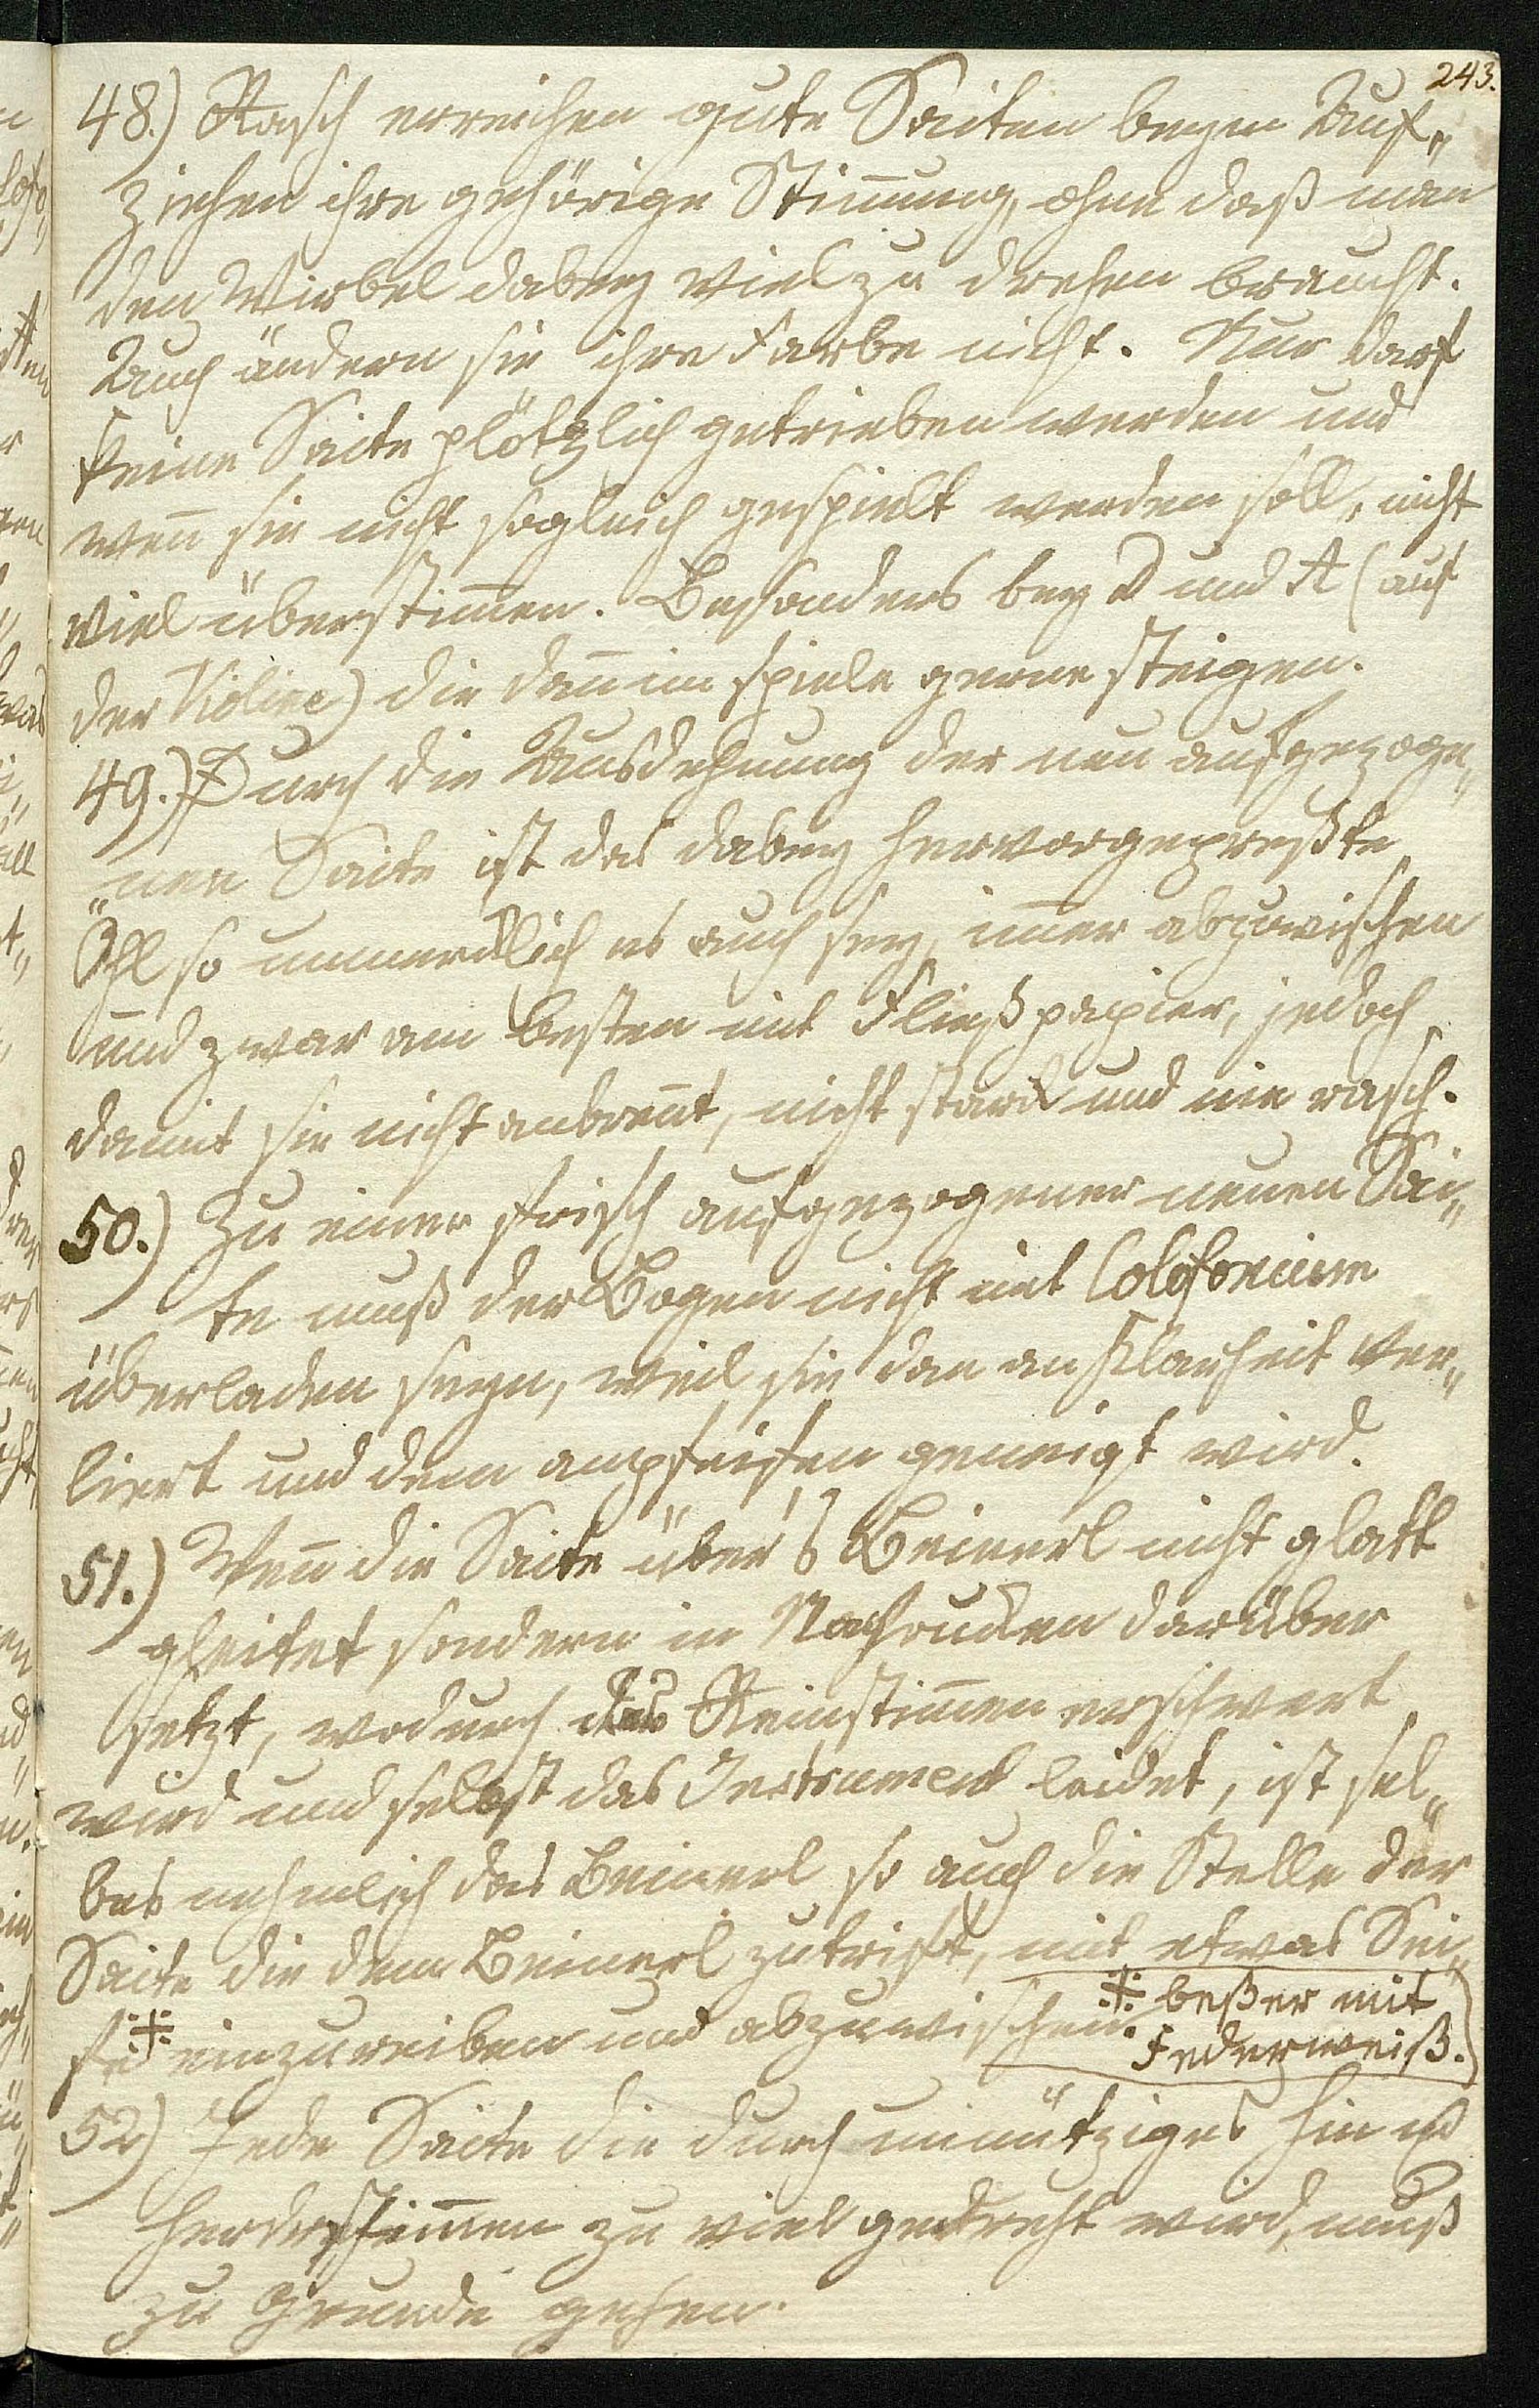 243.
48.) Rasch erreichen gute Saiten beym Auf„
ziehen ihre gehörige Stim̄ung, ohne daß man
den Wirbel dabey viel zu drehen braucht.
Auch ändern sie ihre Farbe nicht. Nur darf
keine Saite plötzlich getrieben werden und
wen̄ sie nicht sogleich gespielt werden soll, nicht
viel überstim̄en. Besonders bey D und A (auf
der Violine) die dan̄ im Spiele gerne steigen.
49.) Durch die Ausdehnung der neu aufgezoge„
„nen Saite ist das dabey hervorgepreßte
Öhl so unmerklich es auch sey, im̄er abzuwischen
und zwar am besten mit Fließpapier, jedoch
damit sie nicht anbren̄t, nicht stark und nie rasch.
50.) Zu einer frisch aufgezogener neuen Sai„
te muß der Bogen nicht mit Colofonium
überladen seyn, weil sie dan an Klarheit ver„
liert und dem anpfeifen geneigt wird.
51.) Wen̄ die Saite über's Beinerl nicht glatt
gleitet sondern in Nachrucken darüber
setzt, wodurch das Reinstim̄en erschwert
wird und selbst das Instrument leidet, ist sel„
bes nehmlich das Beinerl so auch die Stelle der
Saite die dem Beinerl zutrifft, mit etwas Sei„
fe ⁜ einzureiben und abzuwischen.
⁜ beßer mit
Federweiß.
52) Jede Saite die durch unnütziges hin u
herderstim̄en zu viel gedreht wird, muß
zu Grunde gehen.